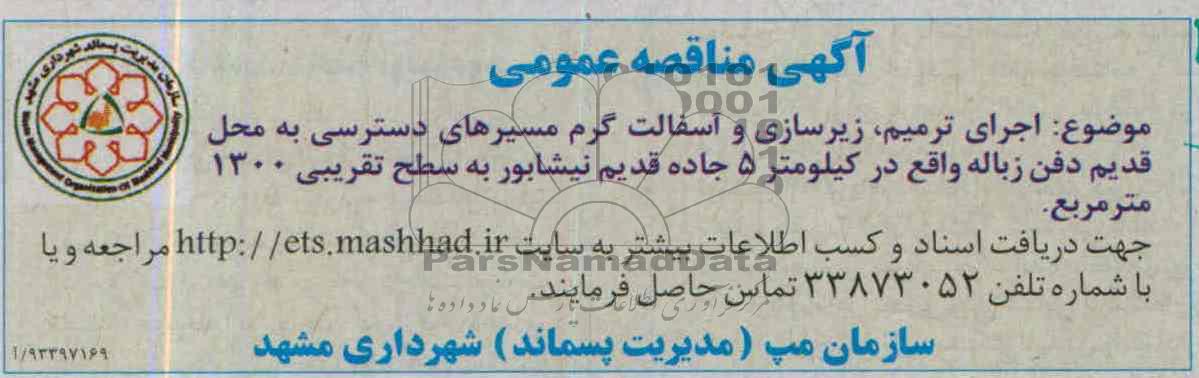 آگهی مناقصه عمومی
موضوع: اجرای ترمیم، زیرسازی و آسفالت گرم مسیرهای دسترسی به محل
قدیم دفن زباله واقع در کیلومتر ۵ جاده قدیم نیشابور به سطح تقریبی ۱۳۰۰
مترمربع.
جهت دریافت اسناد و کسب اطلاعات بیشتر به سایت http://ets.mashhad.ir مراجعه و یا
با شماره تلفن ۳۳۸۷۳۰۵۲ تماس حاصل فرمایند.
سازمان مپ (مدیریت پسماند) شهرداری مشهد
۹۳۳۹۷۱۶۹/آ
سازمان مدیریت پسماند شهرداری مشهد
Waste Management Organization Of Mashhad Municipality
ParsNamadData